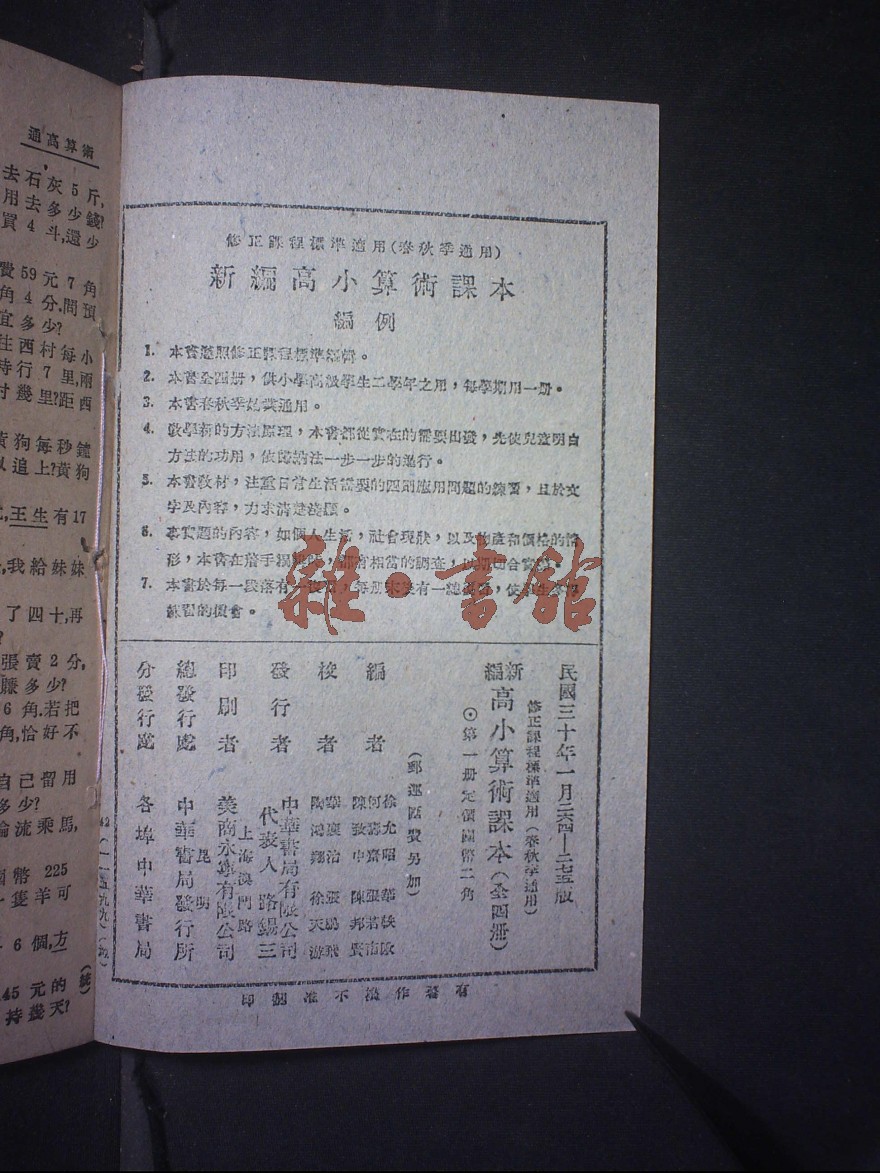 修正課程標準適用(春秋季適用)
新編高小算術課本
編例
1. 本書遵照修正課程標準編輯。
2. 本書全四册，供小學高級學生二學年之用，每學期用一册。
3. 本書春秋季始業通用。
4. 教學新的方法原理，本書都從實在的需要出發，先使兒童明白
方法的功用，依歸納法一步一步的進行。
5. 本書教材，注重日常生活需要的四則應用問題的練習，且於文
字及內容，力求清楚淺顯。
6. 事實題的內容，如個人生活，社會現狀，以及物產和價格的情
形，本書在着手
7. 本書於每一段落有一
練習的機會。
雜·書館
民國三十年一月二六四—二七五版
修正課程標準適用(春秋季適用)
新編高小算術課本(全四册)
⊙第一册定價國幣二角
(郵運匯費另加)
編者
徐允昭
何
張若南
陳致中
陳邦賢
校者
華襄治
張鵬飛
陶鴻翔
徐天游
發行者
中華書局有限公司
代表人 路錫三
印刷者
上海澳門路
美商永寧有限公司
總發行處
昆明
中華書局發行所
分發行處
各埠中華書局
有著作權不准翻印
通高算術
去石灰5斤,
用去多少錢?
買4斗,還少
費59元7角
角4分.問預
宜多少?
往西村每小
時行7里,兩
村幾里?距西
黃狗每秒鐘
以追上?黃狗
王生有17
,我給妹妹
了四十,再
張賣2分,
賺多少?
6角.若把
角,恰好不
自己留用
多少?
輪流乘馬,
國幣 225
一隻羊可
6個,方
45元的
持幾天?
(統)